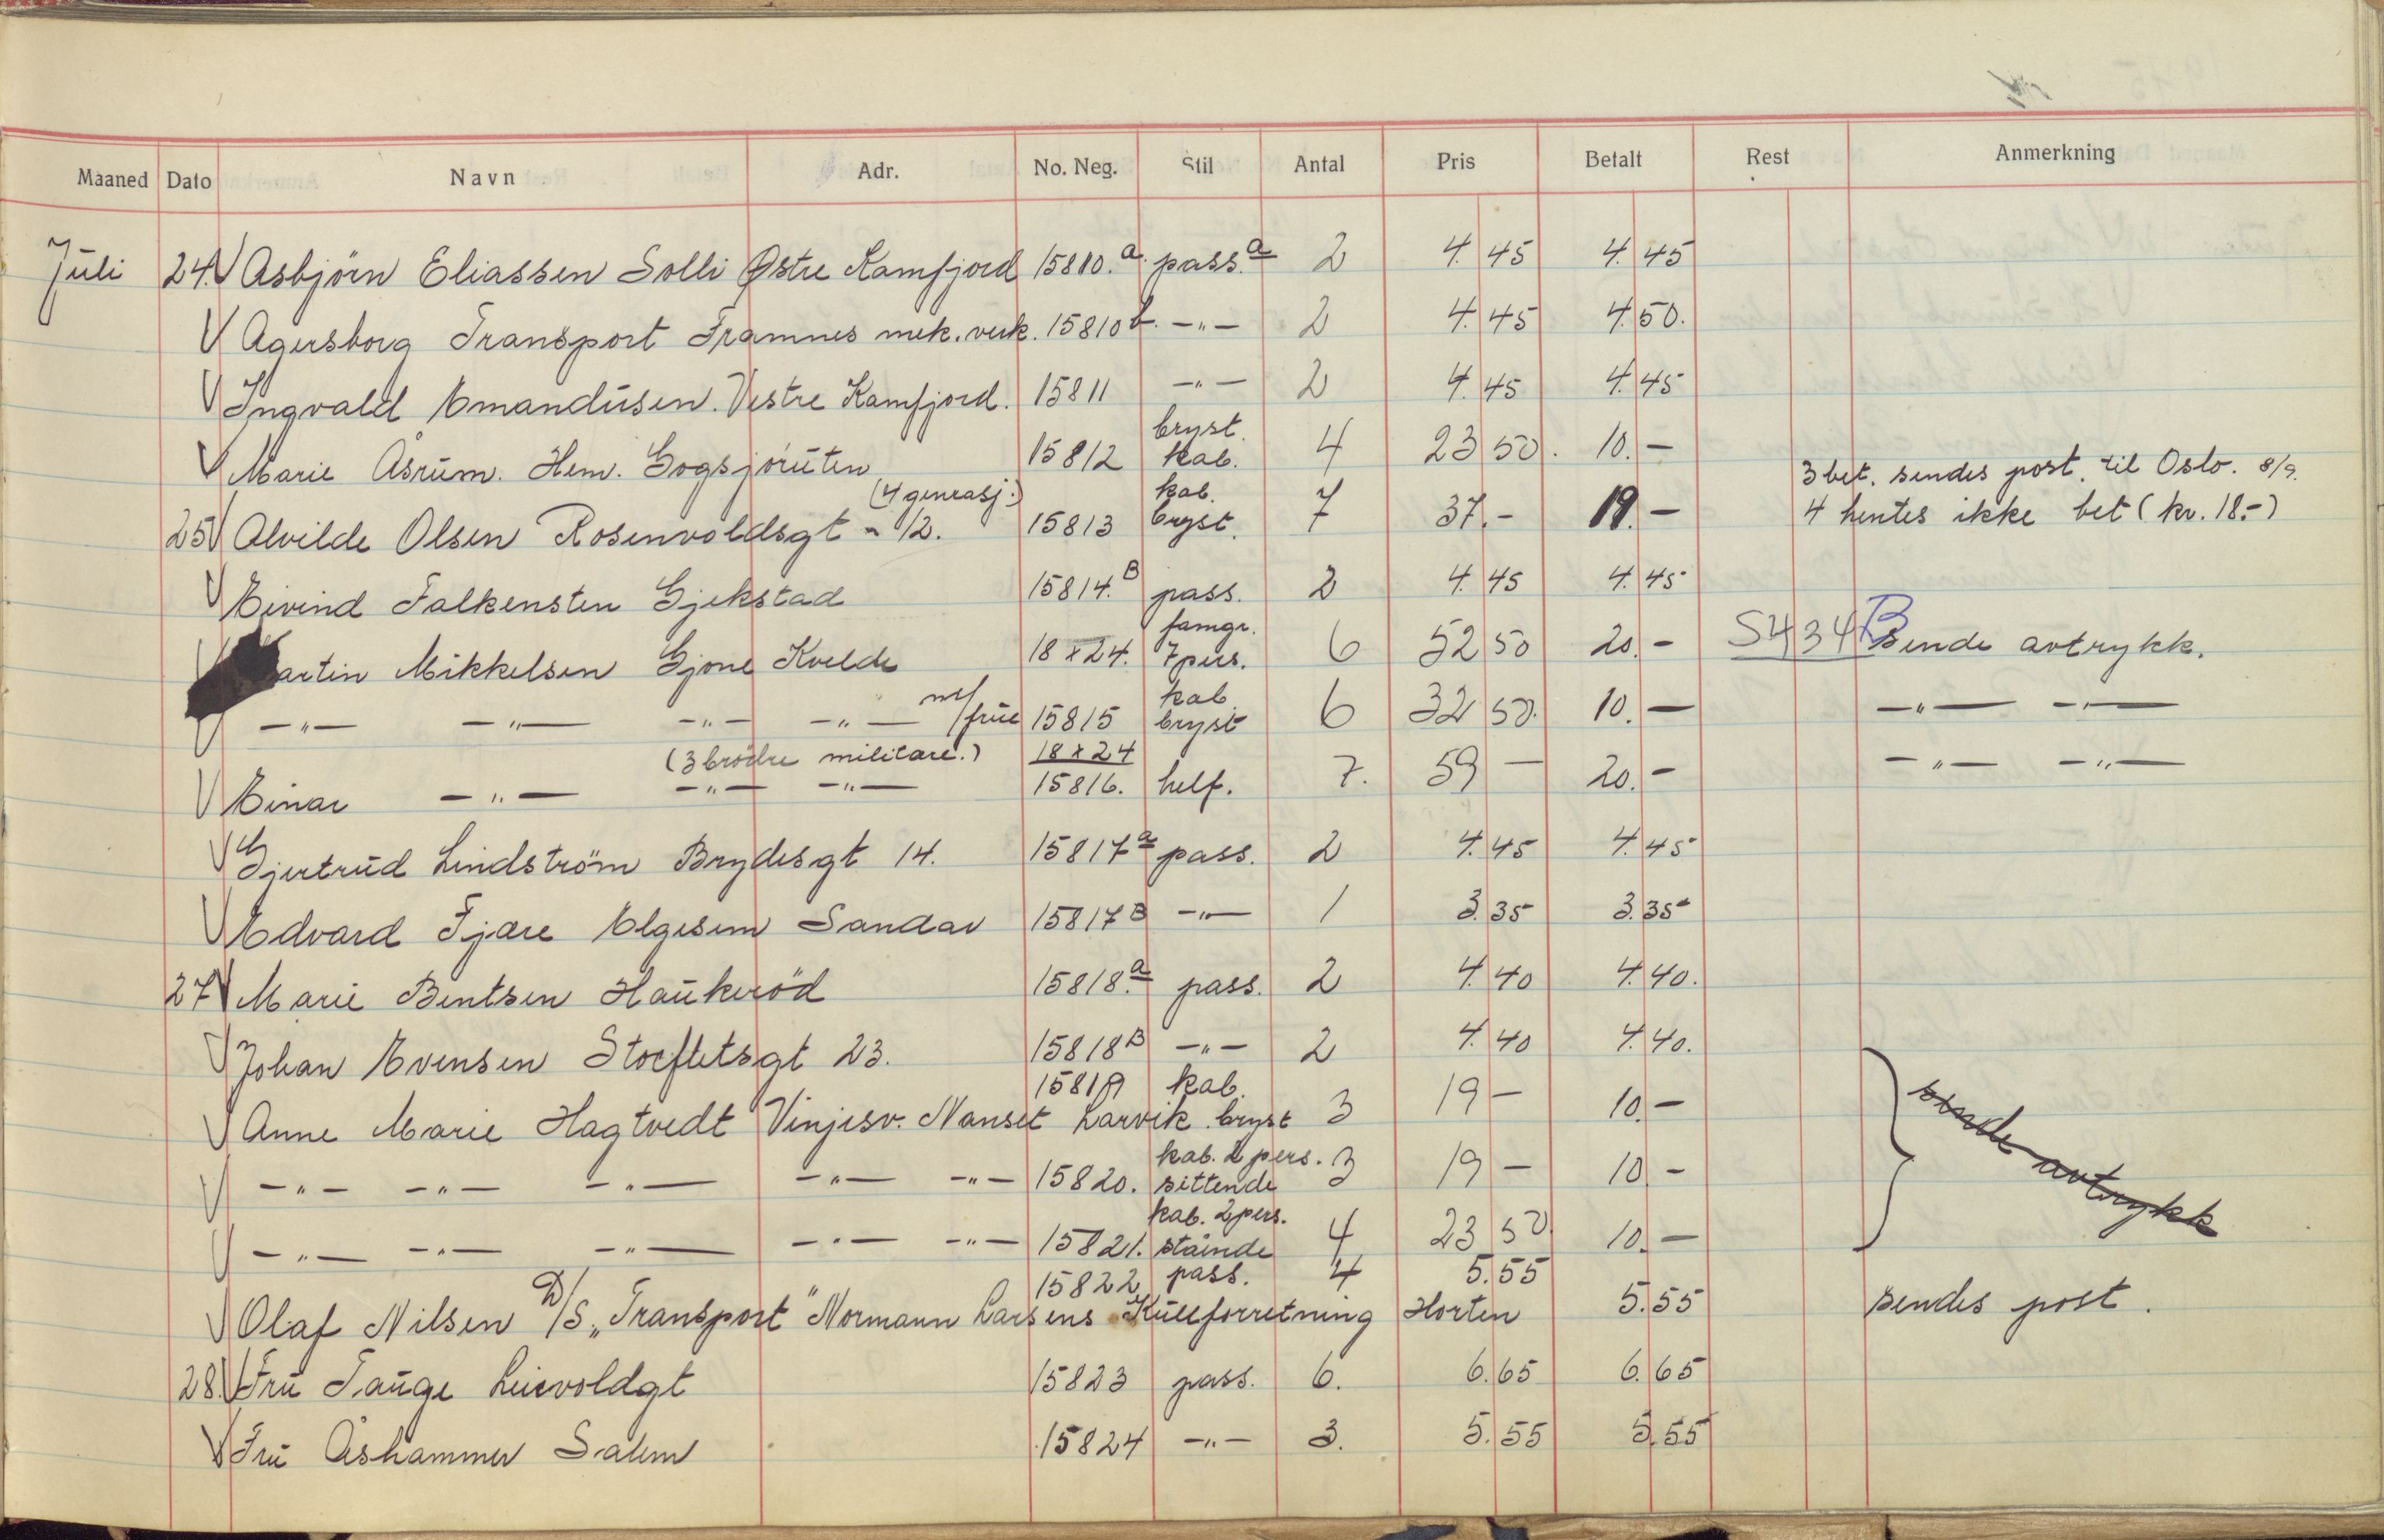 Maaned Dato Navn Adr. No. Neg. Stil Antal Pris Betalt Rest Anmerkning
Juli 24. V Asbjörn Eliassen Solli Østre Kamfjord 15810.a pass.a 2 4.45 4.45
V Agersborg Transport Framnes mek. verk. 15810 b. -"- 2 4.45 4.50.
V Ingvald Amandusen. Vestre Kamfjord. 15811 -"- 2 4.45 4.45
V Marie Åsrum. Hem. Gogsjøruten 15812 bryst. kab. 4 23 50. 10.-
25 V Alvilde Olsen Rosenvoldsgt - 12. (4 generasj.) 15813 kab. bryst. 7 37.- 19.- 3 bet. sendes post. til Oslo. 8/9. 4 hentes ikke bet (kr. 18.-)
V Eivind Falkensten Gjekstad 15814.B pass. 2 4.45 4.45
V artin Mikkelsen Gjone Kvelde 18 x 24. famgr. 7 pers. 6 52 50 20.- S434B sende avtrykk.
V -"- -"- -"- -"- m/frue 15815 kab bryst 6 32 50. 10.- -"- -"-
V Einar -"- (3 brödre militære.) -"- -"- 18 x 24 15816. helf. 7. 59 - 20.- -"- -"-
V Gjertrud Lindström Brydesgt 14. 15817a pass. 2 4.45 4.45
V Edvard Fjære Elgesem Sandar 15817B -"- 1 3.35 3.35
27 V Marie Bentsen Haukeröd 15818.a pass. 2 4.40 4.40.
V Johan Evensen Stoefletsgt 23. 15818B -"- 2 4.40 4.40.
V Anne Marie Hagtvedt Vinjesv. Nanset Larvik 15819 kab. bryst 3 19 - 10.- sende avtrykk
V -"- -"- -"- -"- -"- 15820. kab. 2 pers. sittende 3 19 - 10 -
V -"- -"- -"- -"- -"- 15821. kab. 2 pers. stående 4 23 50. 10.-
V Olaf Nilsen D/S „Transport" Normann Larsens Kullforretning Horten 15822 pass. 4 5.55 5.55 sendes post.
28. V Fru Tauge Leirvoldgt 15823 pass. 6. 6.65 6.65
V Fru Åshammer Salem 15824 -"- 3. 5.55 5.55